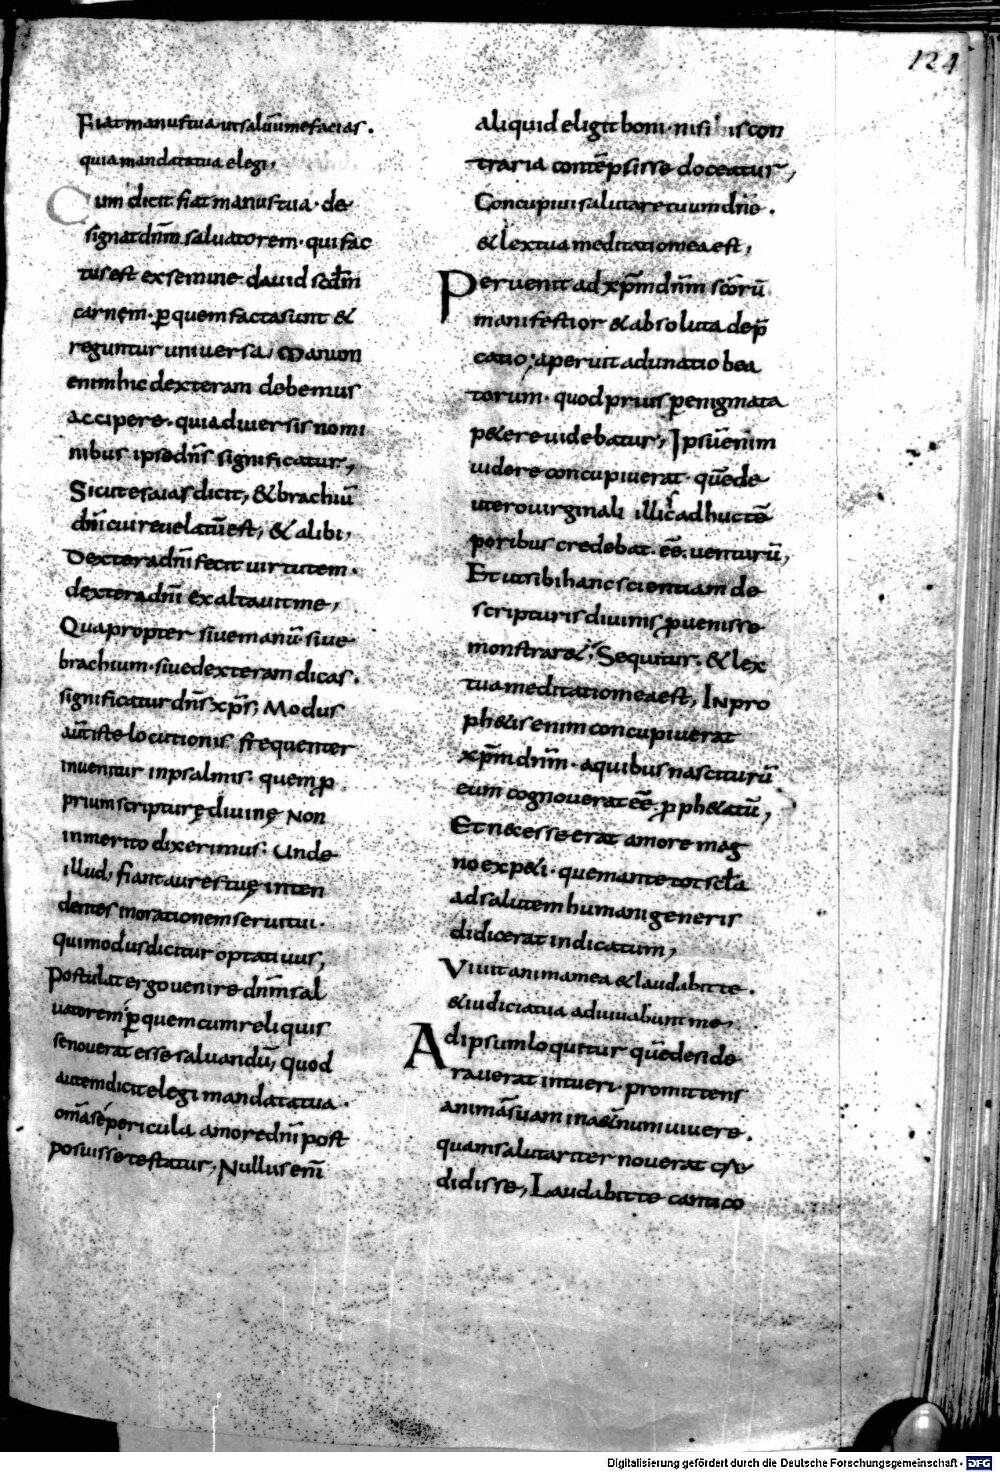 124
Fiat manus tua ut saluū me facias.
quia mandata tua elegi;
Cum dicit fiat manus tua· de
signat dn̄m saluatorem· qui fac
tus est ex semine dauid scd̄m
carnem· ꝑ quem facta sunt &
reguntur uniuersa; Manum
enim hic dexteram debemus
accipere· quia diuersis nomi
nibus ipse dn̄s significatur;
Sicut esaias dicit; & brachiū
dn̄i cui reuelatū est; & alibi;
Dextera dn̄i fecit uirtutem·
dextera dn̄i exaltauit me;
Quapropter siue manū· siue
brachium· siue dexteram dicas·
significatur dn̄s xp̄s; Modus
aūt iste locutionis frequenter
inuenitur in psalmis· quem ꝓ
prium scripturę diuinę non
inmerito dixerimus· Unde
illud; fiant aures tuę inten
dentes in orationem serui tui·
qui modus dicitur optatiuus;
Postulat ergo uenire dn̄m sal
uatorem· ꝑ quem cum reliquis
se nouerat esse saluandū; quod
autem dicit elegi mandata tua·
om̄ia se pericula amore dn̄i post
posuisse testatur; Nullus enī
aliquid eligit boni· nisi his con
traria contēpsisse doceatur;
Concupiui salutare tuum dn̄e·
& lex tua meditatio mea est;
Peruenit ad xp̄m dn̄m scōrū
manifestior & absoluta dep̄
catio; aperuit adunatio bea
torum· quod prius ꝑ enigmata
p&ere uidebatur; Ipsū enim
uidere concupiuerat· quē de
utero uirginali illic adhuc tē
poribus credebat· eē· uenturū;
Et ut sibi hanc scientiam de
scripturis diuinis ꝓuenisse
monstrar&; Sequitur· & lex
tua meditatio mea est; In pro
ph&is enim concupiuerat
xp̄m dn̄m· a quibus nasciturū
eum cognouerat eē ꝓph&atū;
Et nec esse erat amore mag
no exp&i· quem ante tot scl̄a
ad salutem humani generis
didicerat indicatum;
Viuit anima mea & laudabit te·
& iudicia tua adiuuabunt me;
Ad ipsum loquitur quē deside
rauerat intueri· promittens
animā suam in a&̄num uiuere·
quam salutariter nouerat cre
didisse; Laudabit te cantico
Digitalisierung gefördert durch die Deutsche Forschungsgemeinschaft - DFG